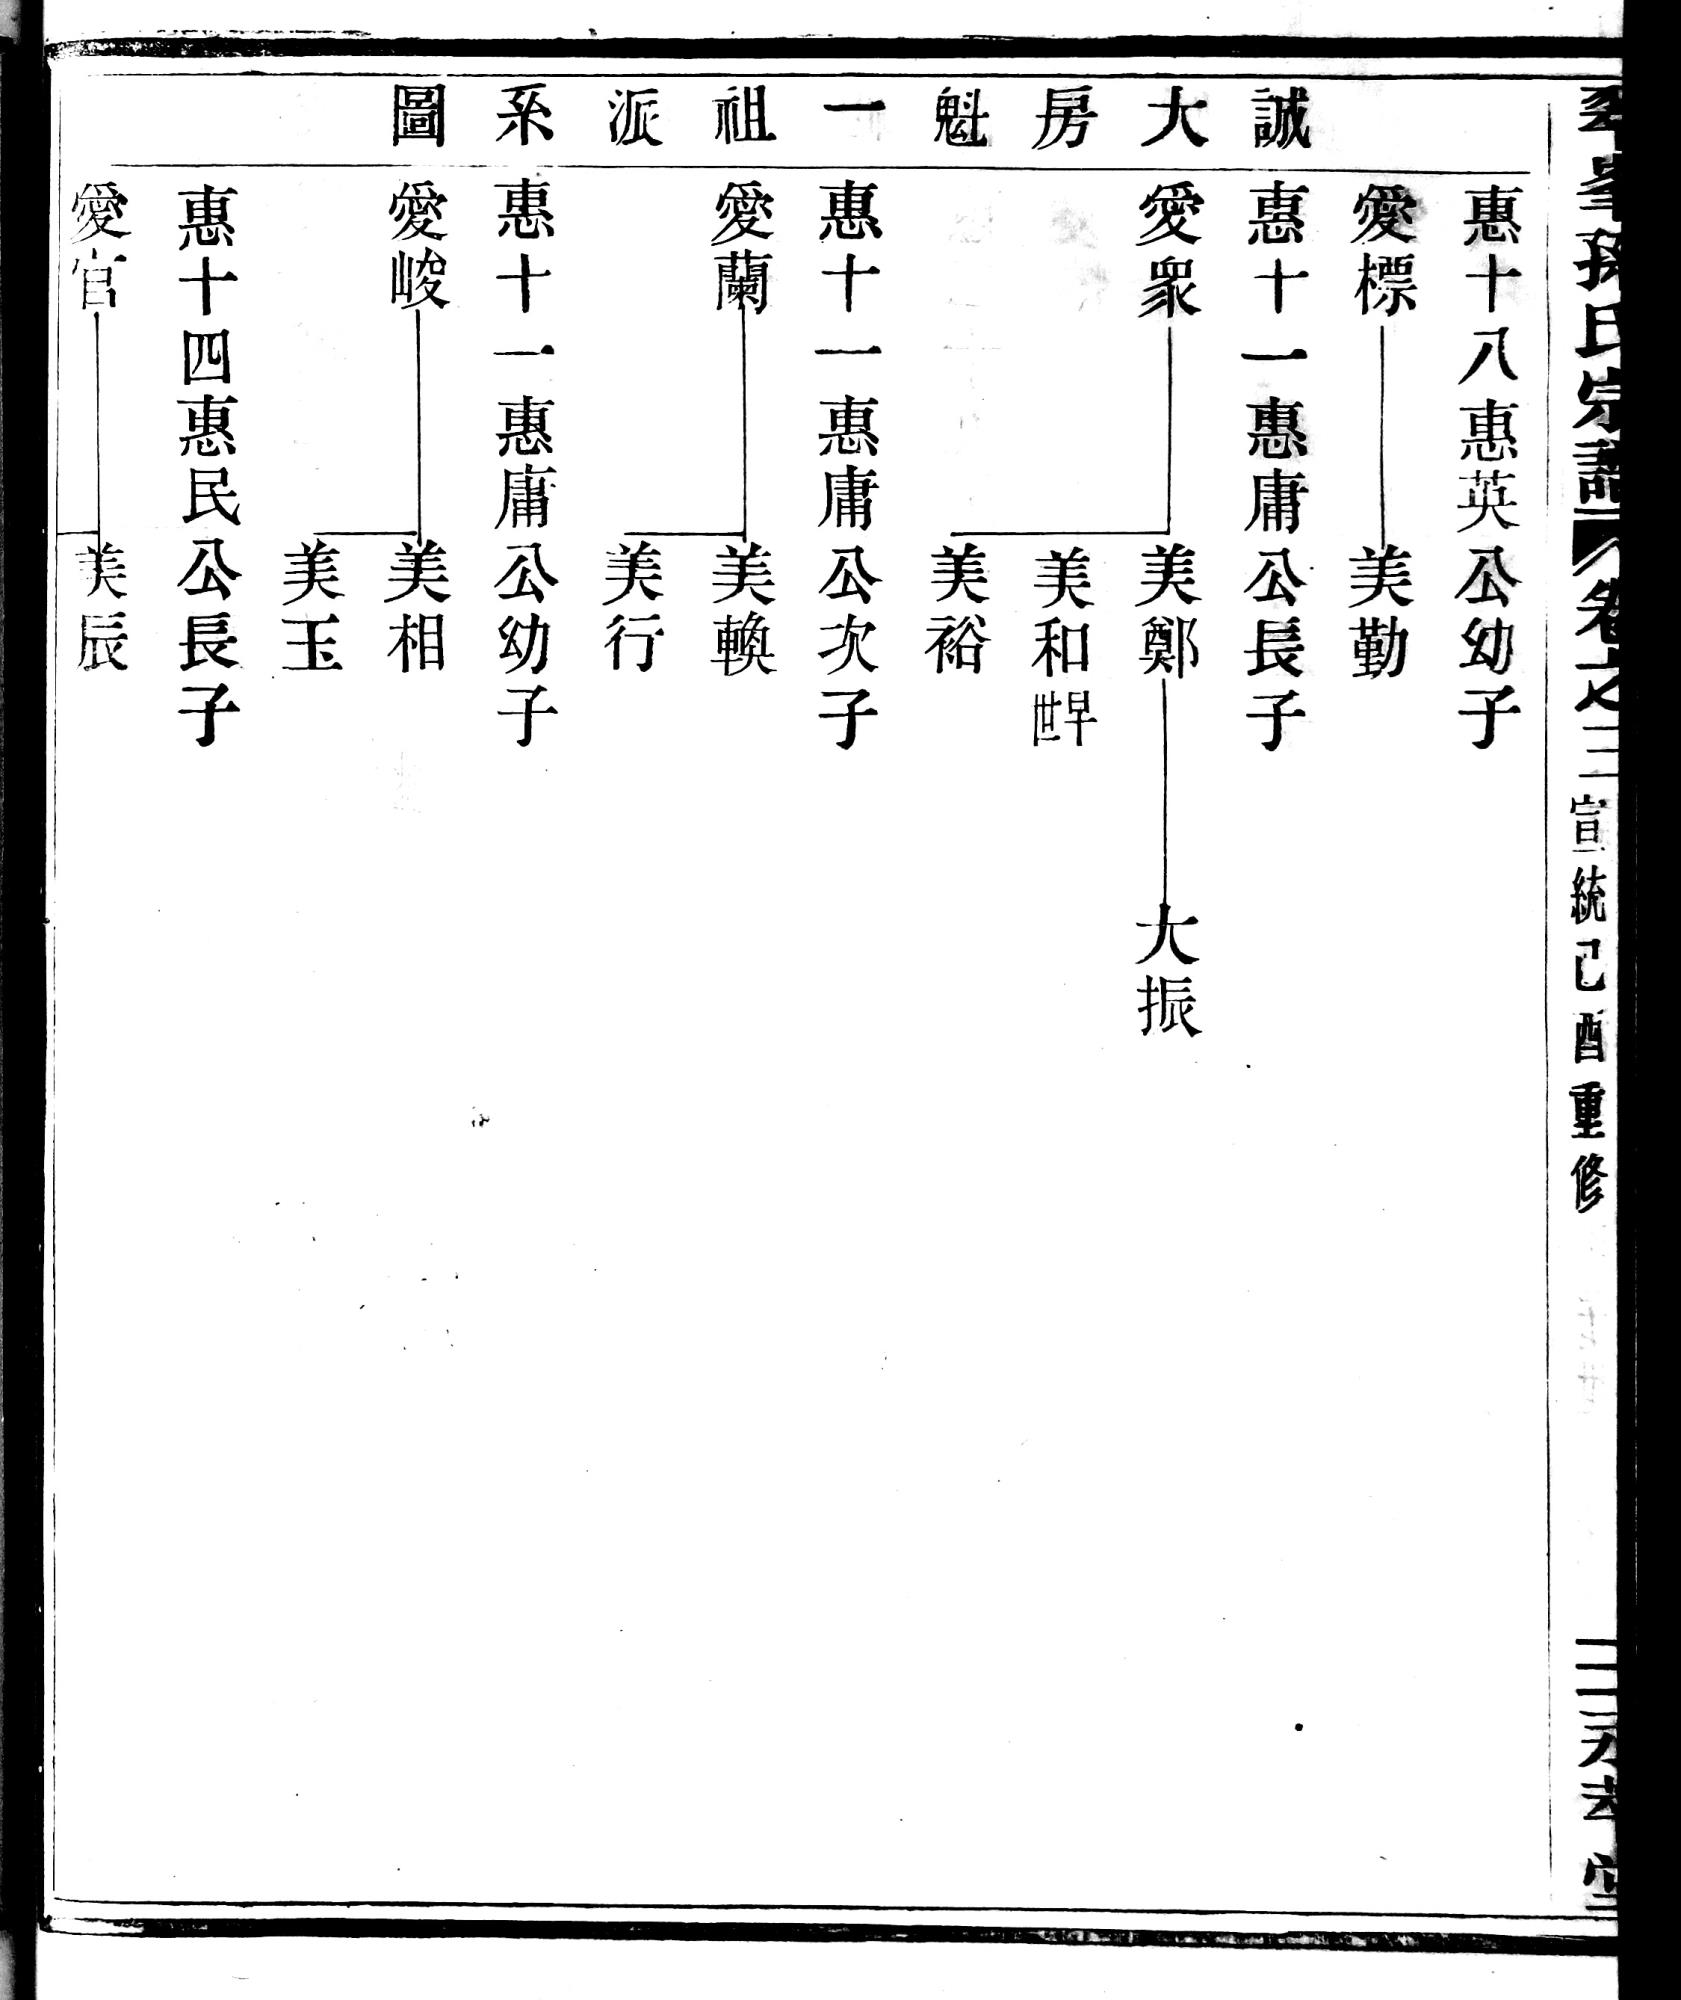 孫氏宗譜 卷之三 宣統己酉重修 二 永孝堂
誠大房魁一祖派系圖
惠十八惠英公幼子
愛標 美勤
惠十一惠庸公長子
愛眾 美鄭 大振
美和 早世
美裕
惠十一惠庸公次子
愛蘭 美輓
美行
惠十一惠庸公幼子
愛峻 美相
美玉
惠十四惠民公長子
愛官 美辰